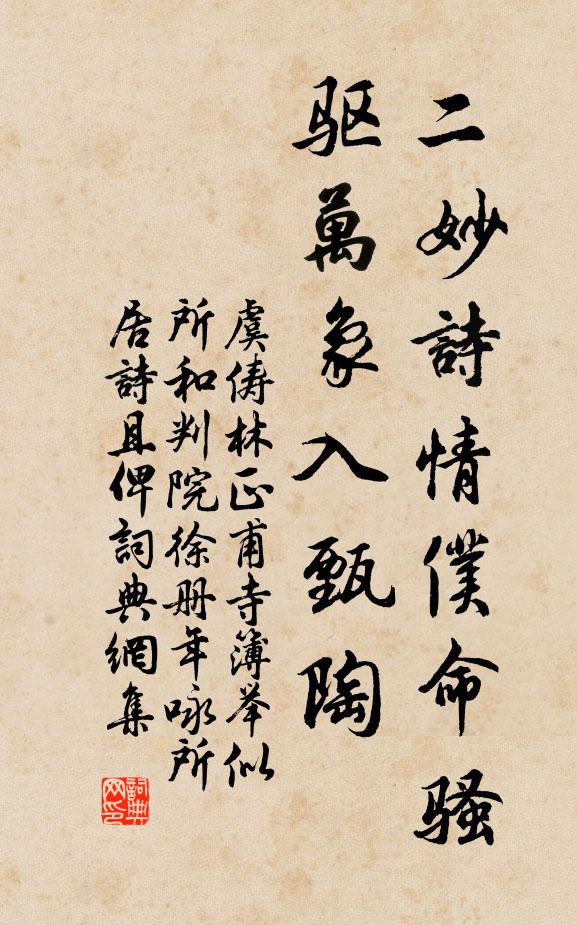 二妙詩情僕命骚
驱萬象入甄陶
虞俦林正甫寺簿举似
所和判院徐册年咏所
居詩且俾詞典網集
詞典网印